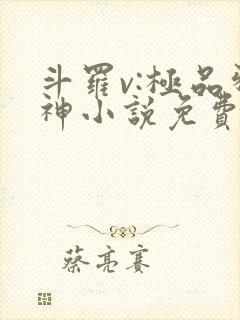 斗羅v:極品
神小說免費
蔡亮賽